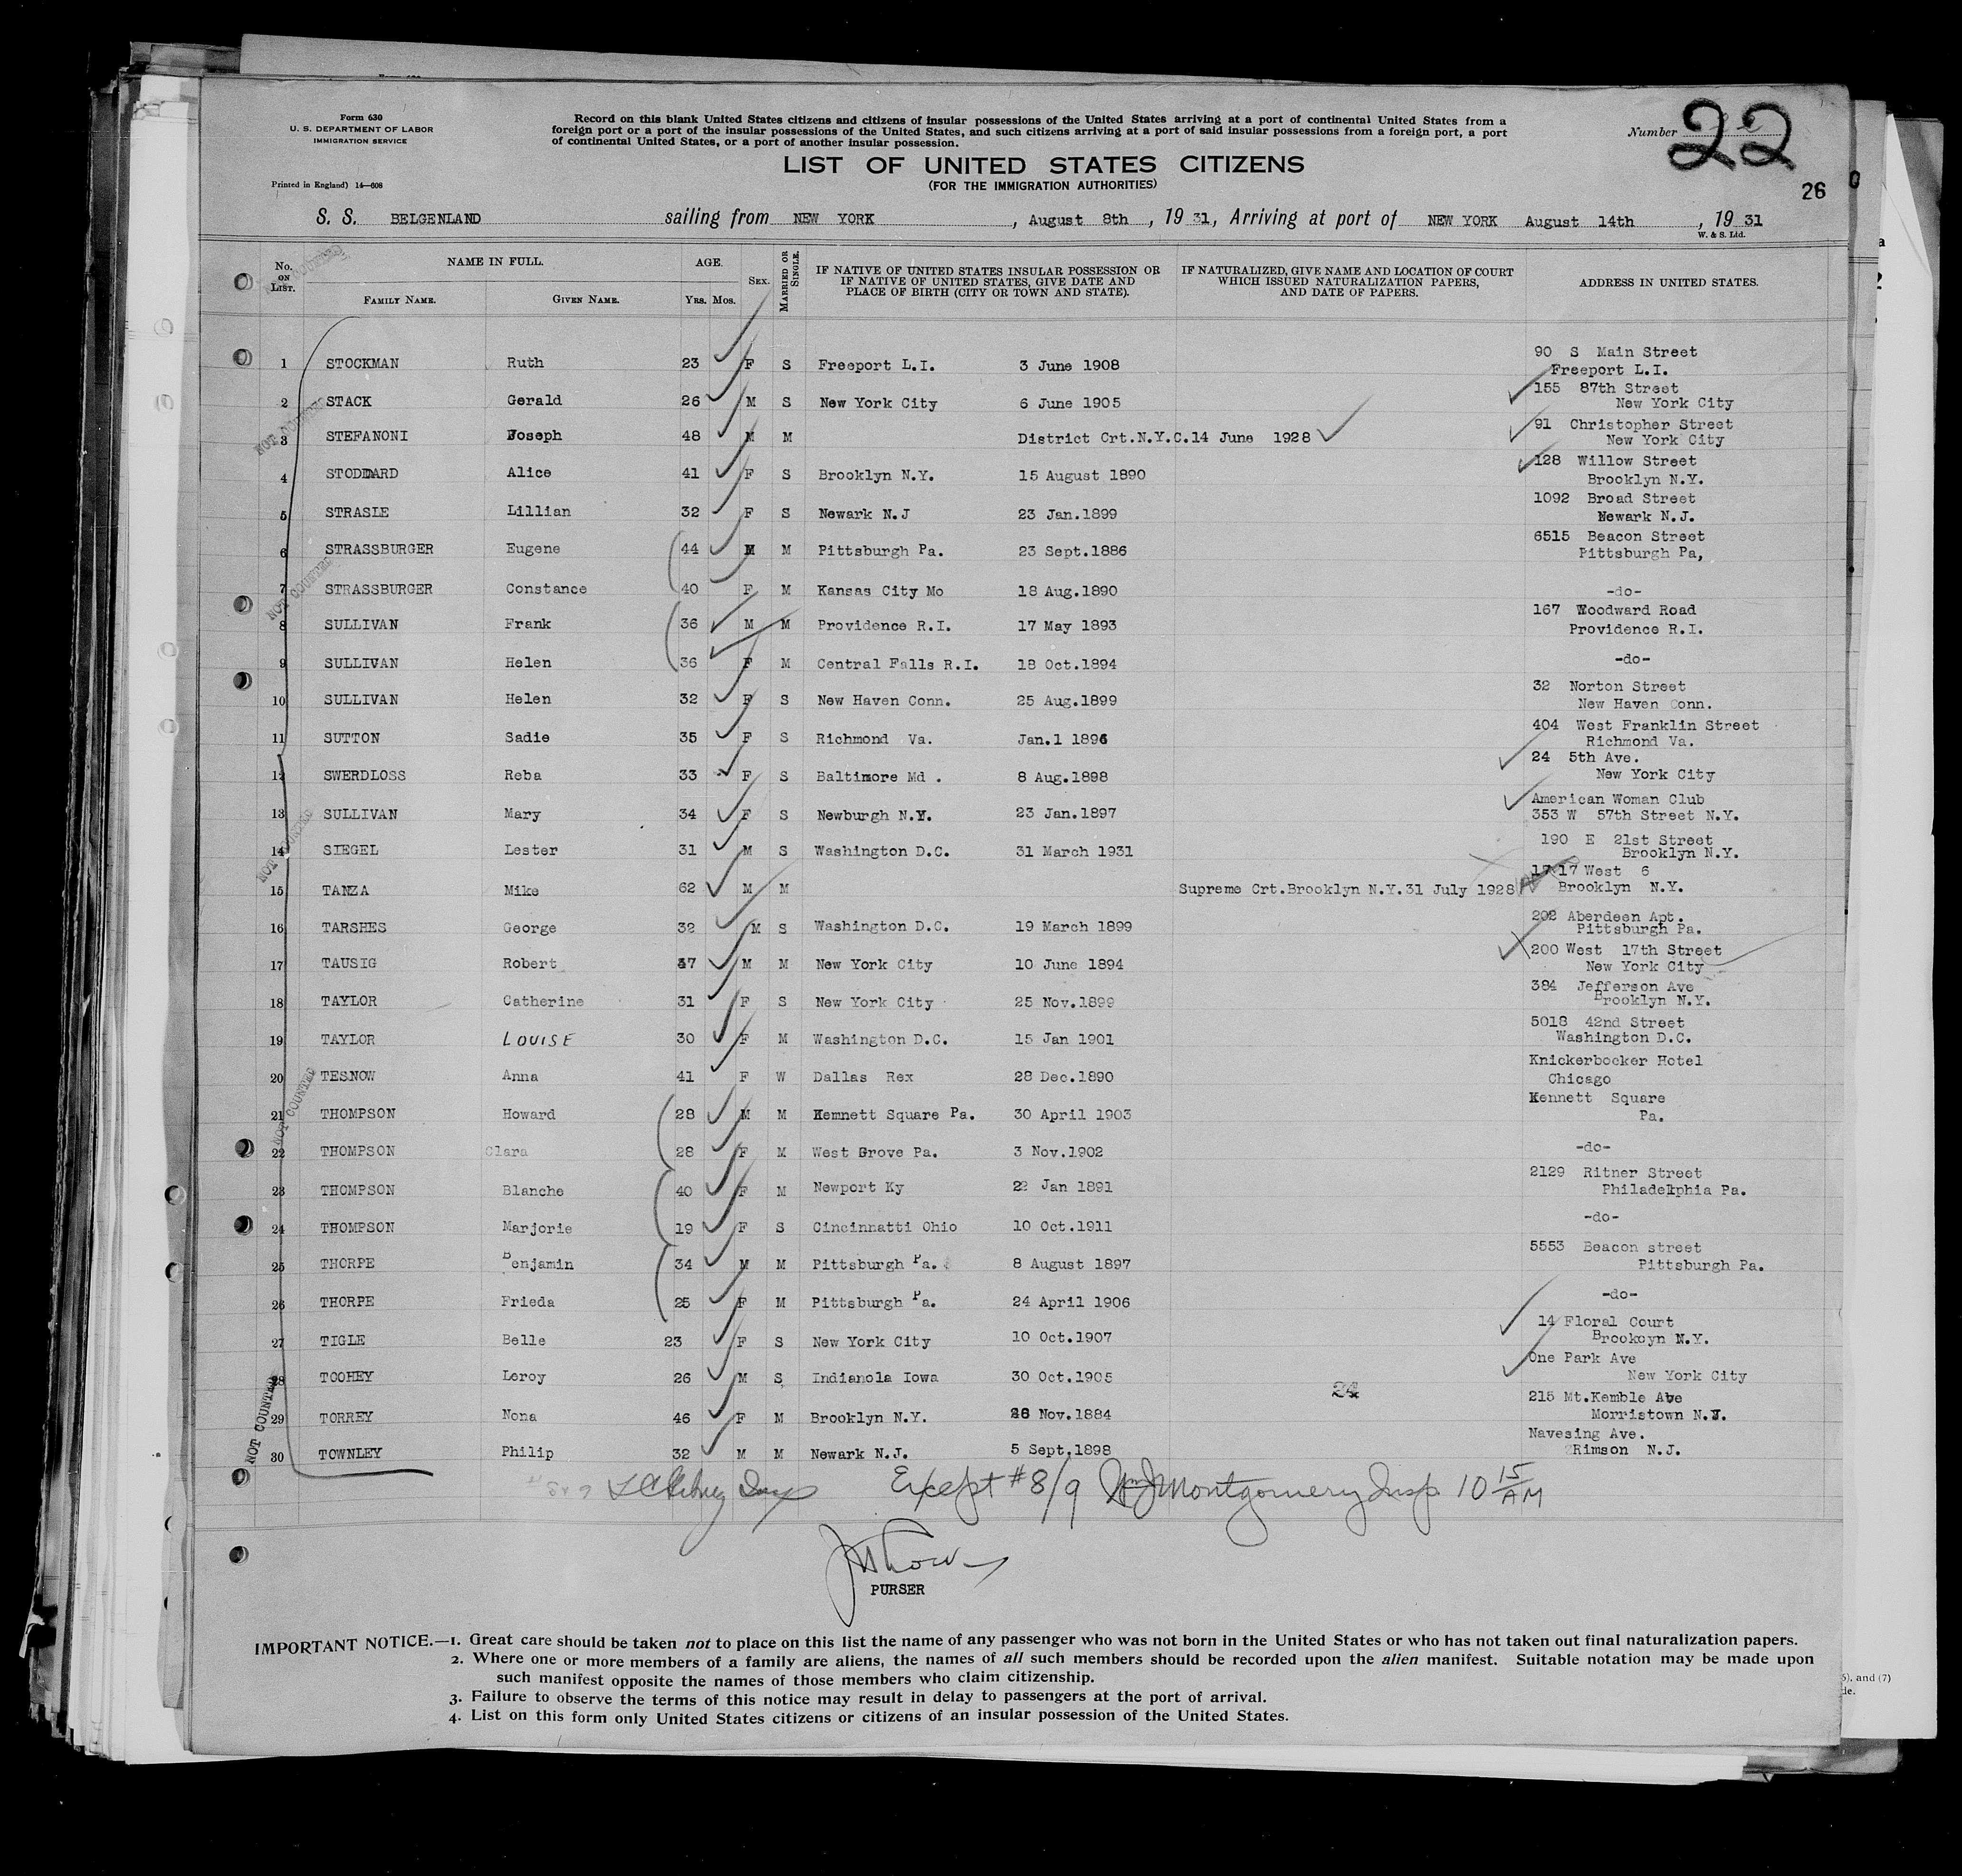 Form 630
U. S. DEPARTMENT OF LABOR
IMMIGRATION SERVICE
Record on this blank United States citizens and citizens of insular possessions of the United States arriving at a port of continental United States from a
foreign port or a port of the insular possessions of the United States, and such citizens arriving at a port of said insular possessions from a foreign port, a port
of continental United States, or a port of another insular possession.
Number 22
LIST OF UNITED STATES CITIZENS
(FOR THE IMMIGRATION AUTHORITIES)
Printed in England) 14—608
26
S. S. BELGENLAND sailing from NEW YORK , August 8th , 19 31, Arriving at port of NEW YORK August 14th , 19 31
W. & S. Ltd.
No. ON LIST. NAME IN FULL. AGE. SEX. MARRIED OR SINGLE. IF NATIVE OF UNITED STATES INSULAR POSSESSION OR IF NATIVE OF UNITED STATES, GIVE DATE AND PLACE OF BIRTH (CITY OR TOWN AND STATE). IF NATURALIZED, GIVE NAME AND LOCATION OF COURT WHICH ISSUED NATURALIZATION PAPERS, AND DATE OF PAPERS. ADDRESS IN UNITED STATES.
FAMILY NAME. GIVEN NAME. YRS. MOS.
1 STOCKMAN Ruth 23 F S Freeport L.I. 3 June 1908 90 S Main Street
Freeport L.I.
2 STACK Gerald 26 M S New York City 6 June 1905 155 87th Street
New York City
3 STEFANONI Joseph 48 M M District Crt.N.Y.C.14 June 1928 91 Christopher Street
New York City
4 STODDARD Alice 41 F S Brooklyn N.Y. 15 August 1890 128 Willow Street
Brooklyn N.Y.
5 STRASLE Lillian 32 F S Newark N.J 23 Jan.1899 1092 Broad Street
Newark N.J.
6 STRASSBURGER Eugene 44 M M Pittsburgh Pa. 23 Sept.1886 6515 Beacon Street
Pittsburgh Pa,
7 STRASSBURGER Constance 40 F M Kansas City Mo 18 Aug.1890 -do-
8 SULLIVAN Frank 36 M M Providence R.I. 17 May 1893 167 Woodward Road
Providence R.I.
9 SULLIVAN Helen 36 F M Central Falls R.I. 18 Oct.1894 -do-
10 SULLIVAN Helen 32 F S New Haven Conn. 25 Aug.1899 32 Norton Street
New Haven Conn.
11 SUTTON Sadie 35 F S Richmond Va. Jan.1 1896 404 West Franklin Street
Richmond Va.
12 SWERDLOSS Reba 33 F S Baltimore Md . 8 Aug.1898 24 5th Ave.
New York City
13 SULLIVAN Mary 34 F S Newburgh N.Y. 23 Jan.1897 American Woman Club
353 W 57th Street N.Y.
14 SIEGEL Lester 31 M S Washington D.C. 31 March 1931 190 E 21st Street
Brooklyn N.Y.
15 TANZA Mike 62 M M Supreme Crt.Brooklyn N.Y.31 July 1928 1717 West 6
Brooklyn N.Y.
16 TARSHES George 32 M S Washington D.C. 19 March 1899 202 Aberdeen Apt.
Pittsburgh Pa.
17 TAUSIG Robert 37 M M New York City 10 June 1894 200 West 17th Street
New York City
18 TAYLOR Catherine 31 F S New York City 25 Nov.1899 384 Jefferson Ave
Brooklyn N.Y.
19 TAYLOR LOUISE 30 F M Washington D.C. 15 Jan 1901 5018 42nd Street
Washington D.C.
20 TESNOW Anna 41 F W Dallas Rex 28 Dec.1890 Knickerbocker Hotel
Chicago
21 THOMPSON Howard 28 M M Kemnett Square Pa. 30 April 1903 Kennett Square
Pa.
22 THOMPSON Clara 28 F M West Grove Pa. 3 Nov.1902 -do-
23 THOMPSON Blanche 40 F M Newport Ky 22 Jan 1891 2129 Ritner Street
Philadelphia Pa.
24 THOMPSON Marjorie 19 F S Cincinnatti Ohio 10 Oct.1911 -do-
25 THORPE Benjamin 34 M M Pittsburgh Pa. 8 August 1897 5553 Beacon street
Pittsburgh Pa.
26 THORPE Frieda 25 F M Pittsburgh Pa. 24 April 1906 -do-
27 TIGLE Belle 23 F S New York City 10 Oct.1907 14 Floral Court
Brookoyn N.Y.
28 TOOHEY Leroy 26 M S Indianola Iowa 30 Oct.1905 One Park Ave
New York City
24
29 TORREY Nona 46 F M Brooklyn N.Y. Nov.1884 215 Mt.Kemble Ave
Morristown N.J.
30 TOWNLEY Philip 32 M M Newark N.J. 5 Sept.1898 Navesing Ave.
Rimson N.J.
NOT COUNTED
NOT COUNTED
NOT COUNTED
NOT COUNTED
NOT COUNTED
Except #8/9 Wm J Montgomery Insp 10 15 AM
PURSER
IMPORTANT NOTICE.—1. Great care should be taken not to place on this list the name of any passenger who was not born in the United States or who has not taken out final naturalization papers.
2. Where one or more members of a family are aliens, the names of all such members should be recorded upon the alien manifest. Suitable notation may be made upon
such manifest opposite the names of those members who claim citizenship.
3. Failure to observe the terms of this notice may result in delay to passengers at the port of arrival.
4. List on this form only United States citizens or citizens of an insular possession of the United States.
5), and (7)